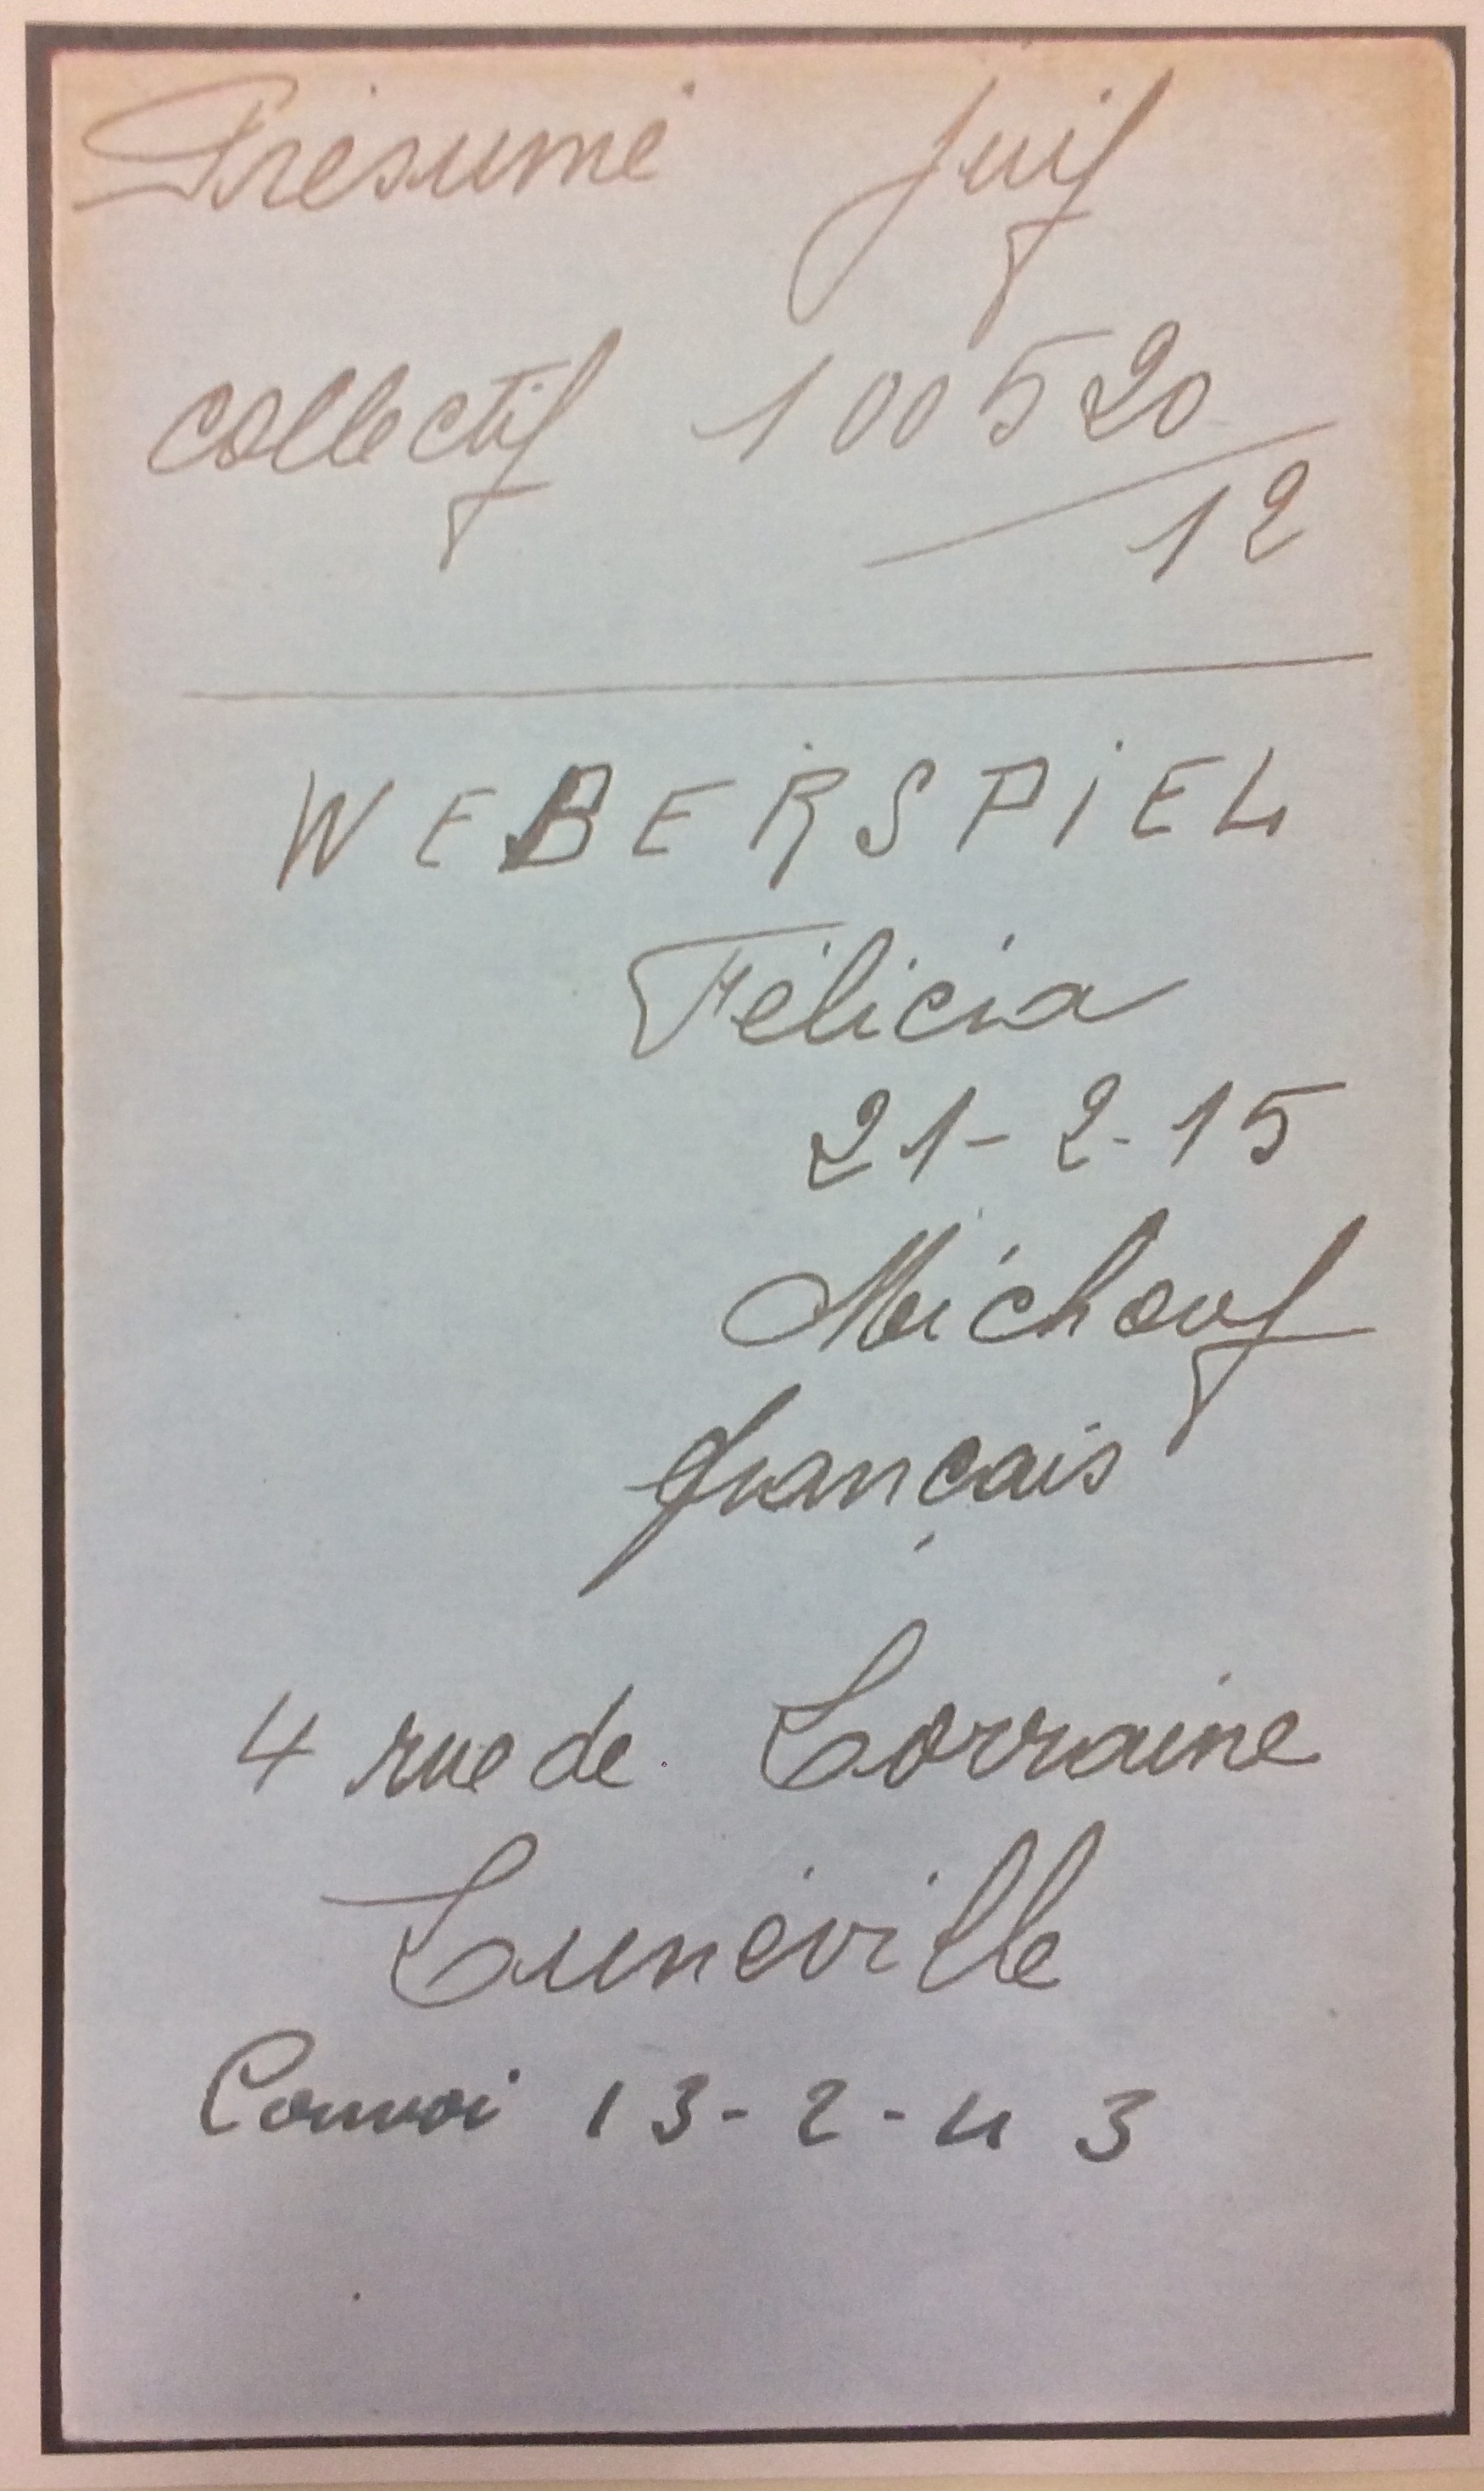 Présumé Juif
collectif 100520
12
WEBERSPIEL
Félicia
21-2-15
Michouf
français
4 rue de Lorraine
Lunéville
Convoi 13-2-43